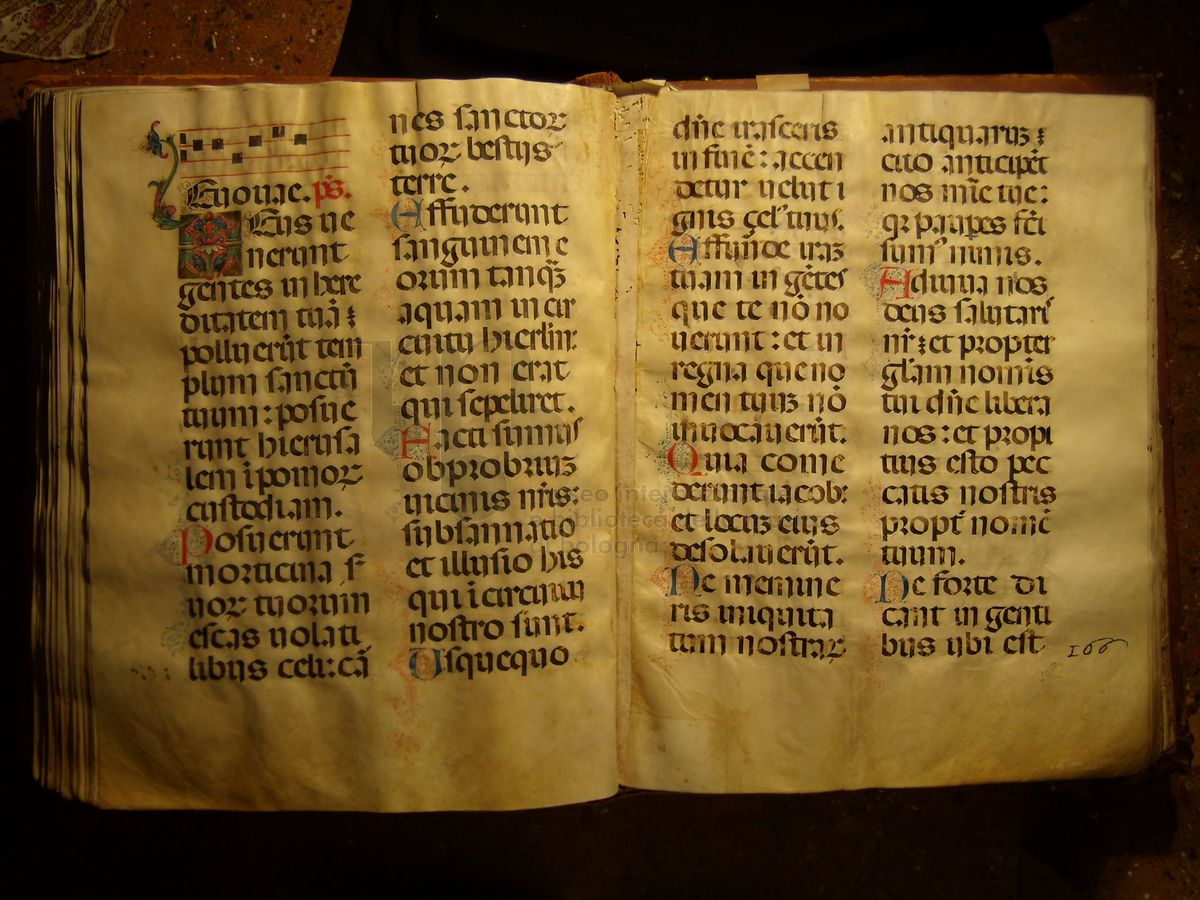 Euouae. ps.
Eus ue
nerunt
gentes in here
ditatem tuā ⁊
polluerūt tem
plum sanctū
tuum : posue
runt hierusa
lem ī pomoꝝ
custodiam.
Posuerunt
morticina ẜ
uoꝝ tuorum
escas uolati
libus celi: cā
nes sanctoꝝ
tuoꝝ bestijs
terre.
Effuderunt
sanguinem e
orum tanqꝫ
aquam in cir
cuitu hierlm:
et non erat
qui sepeliret.
Facti sumus
obprobriuꝫ
uicinis nr̄is:
subsannatio
et illusio his
qui ī circuitu
nostro sunt.
Usquequo
dn̄e irasceris
in finē : accen
detur uelut i
gnis zel' tuus.
Effunde iraꝫ
tuam in gētes
que te nō no
uerunt : et in
regna que no
men tuuꝫ nō
inuocauerūt.
Quia come
derunt iacob:
et locuꝫ eius
desolauerūt.
Ne memine
ris iniquita
tum nostraꝝ
antiquaruꝫ ⁊
cito anticipēt
nos mīe tue:
qꝛ pauꝑes fcī
sumꝰ nimis.
Adiuua nos
deus salutaris
nr̄ ⁊ et propter
gl̄am nominis
tui dn̄e libera
nos : et propi
tius esto pec
catis nostris
propt̄ nomē
tuum.
Ne forte di
cant in genti
bus ubi est
166